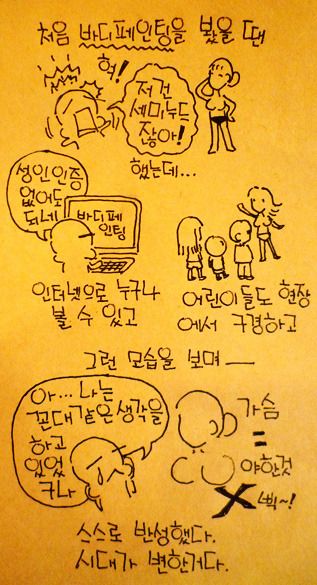 처음 바디페인팅을 봤을 땐
헉!
저건
세미누드
잖아!
했는데...
성인인증
없어도
되네
바디페
인팅
인터넷으로 누구나
볼 수 있고
어린이들도 현장
에서 구경하고
그런 모습을 보며―
아... 나는
꼰대같은 생각을
하고
있었
구나
가슴
=
야한것
X
삑~!
스스로 반성했다.
시대가 변한거다.